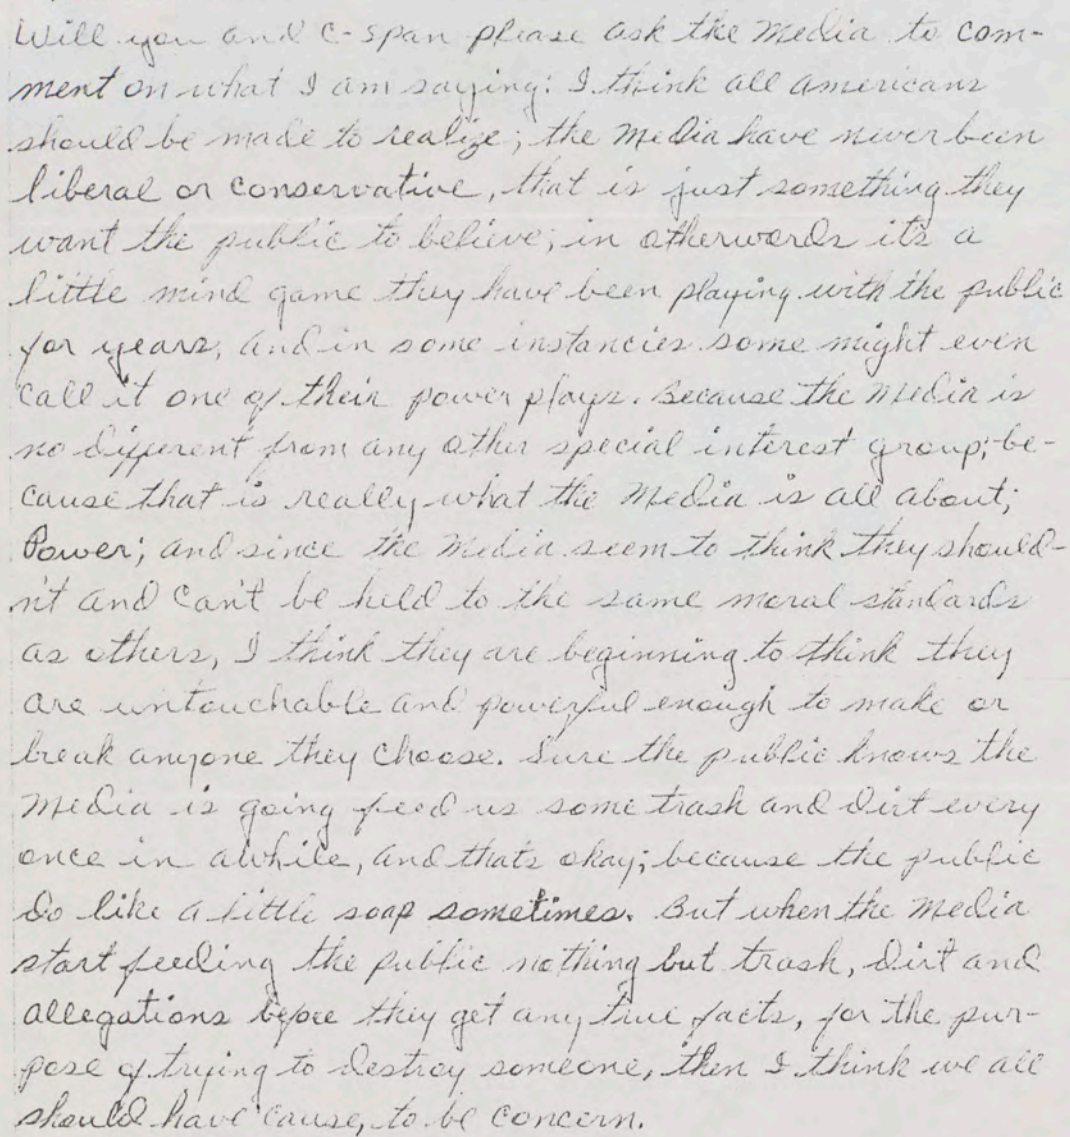 Will you and C-span please ask the Media to com-
ment on what I am saying: I think all americans
should be made to realize; the Media have never been
liberal or conservative, that is just something they
want the public to believe; in otherwords it's a
little mind game they have been playing with the public
for years, and in some instancies some might even
call it one of their power plays. Because the Media is
no different from any other special interest group; be-
cause that is really what the Media is all about;
Power; and since the Media seem to think they should-
n't and can't be held to the same moral standards
as others, I think they are beginning to think they
are untouchable and powerful enough to make or
break anyone they choose. Sure the public knows the
Media is going feed us some trash and dirt every
once in awhile, and thats okay; because the public
do like a little soap sometimes. But when the Media
start feeding the public nothing but trash, dirt and
allegations befoe they get any true facts, for the pur-
pose of trying to destroy someone, then I think we all
should have cause, to be concern.